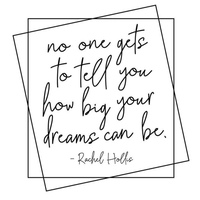 no one gets
to tell you
how big your
dreams can be.
- Rachel Hollis